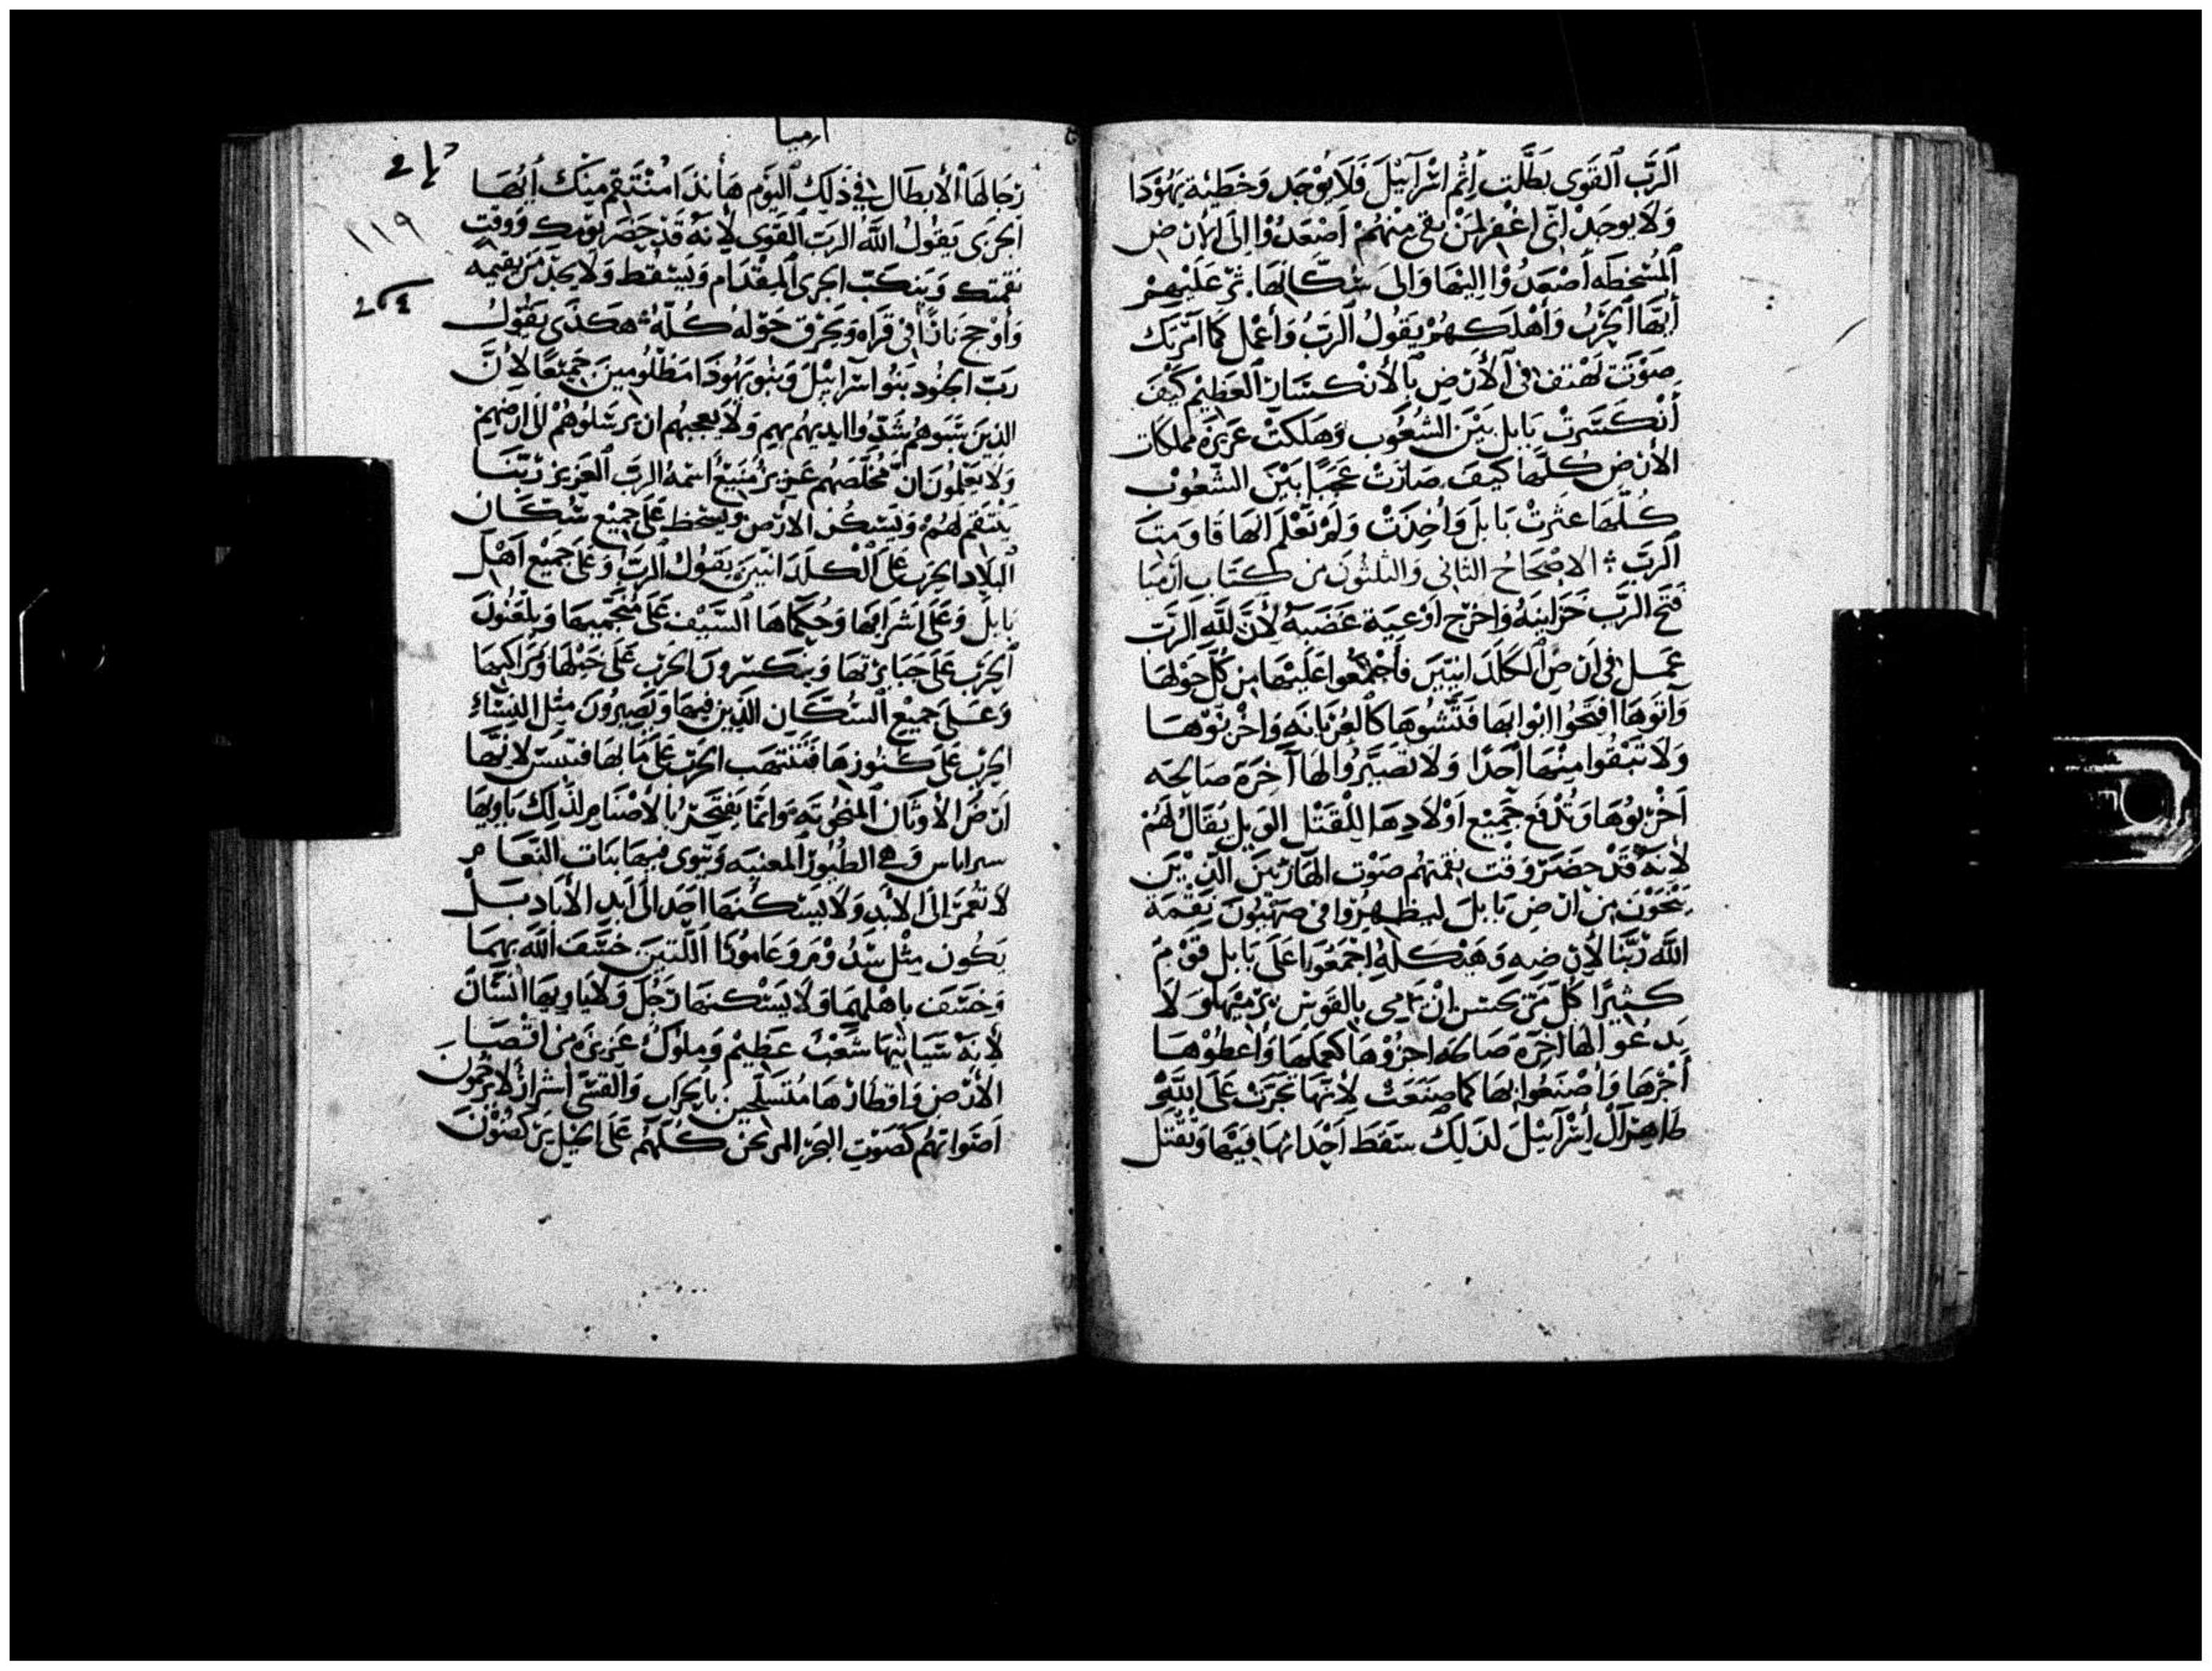 الرَّب القوى بطَّلت إثم اسرآئيل فلا يوجد وخطية يهودا
ولا يوجد انى اغفر لمن بقى منهم اصعدوا الى الارض
المسخطه اصعدوا اليها والى سكانها. ثم عليهم
أيها الحرب وأهلكهم يقول الرب وأعمل كما آمرتك
صوت تهتف فى الأرض بالأنكسار العظيم كيف
أنكسرت بابل بين الشعوب وهلكت عزيزه مملكات
الأرض كلها كيف صارت عجبا بين الشعوب
كلها عثرت بابل وأخذت ولم تعلم انها قاومت
الرب : الاصحاح الثانى والثلثون من كتاب ارميا
فتح الرب خزاينه واخرج اوعية غضبه لأن لله الرب
عمل فى ارض الكلدانيين فاجمعوا عليها من كل حولها
وآتوها افتحوا ابوابها فتشوها كالعريانه واخربوها
ولا تبقوا منها احدًا ولا تصيروا لها آخرة صالحه
اخربوها وتدفع جميع اولادها للقتل الويل يقال لهم
لأنه قد حضر وقت نقمتهم صوت الهاربين الذين
ينجون من ارض بابل ليظهروا فى صهيون نقمة
الله ربنا لأرضه وهيكله اجمعوا على بابل قوم
كثيرًا كل من يحسن ان يرمى بالقوس يرميها ولا
يدعوا لها آخرة صالحه اجزوها كعملها وأعطوها
أجرها واصنعوا بها كما صنعت لأنها تجرت على الله
طاهر آل إسرآئيل لذلك سقط أحداثها فيها وتقتل
ارميا
١١٩
رجالها الأبطال فى ذلك اليوم هأنذا منتقم منك أيها
الجرى يقول الله الرب القوى لأنه قد حضر يومك ووقت
نقمتك وينكب الجرى المقدام ويسقط ولا يجد من يقيمه
وأوجج نارًا فى قراه وتحرق حوله كله : هكذى يقول
رب الجنود بنوا اسرآئيل وبنو يهودا مظلومين جميعًا لأن
الذين سبوهم شدوا ايديهم بهم ولا يعجبهم ان يرسلوهم الى ارضهم
ولا يعلمون ان مخلصهم عزيز منيع أسمه الرب العزيز ربنا
ينتقم لهم ويسكن الارض ويسخط على جميع سكان
البلاد الحرب على الكلدانيين يقول الرب وعلى جميع اهل
بابل وعلى اشرافها وحكماها السيف على منجميها ويلعنون
الحرب على جبابرتها وينكسرون الحرب على خيلها ومراكبها
وعلى جميع السكان الذين فيها ويصيرون مثل النساء
الحرب على كنوزها فتنتهب الحرب على مآبها فتيبس لأنها
ارض الأوثان المنحوته وانما يفتخر بالأصنام لذلك ياويها
سراباس وهى الطيور المعنيه وتنوى فيها بنات النعام
لا تعمر الى الأبد ولا يسكنها احد الى أبد الأباد بل
يكون مثل سدوم وعامورا اللتين خسف الله بهما
وخسف باهلهما ولا يسكنها رجل ولا ياويها انسان
لأنه سيأتيها شعب عظيم وملوك عزيزه من اقصا
الأرض واقطارها متسلحين بالحراب والقسى أشرار لا يرحمون
اصواتهم كصوت البحر المرتجن كلهم على الخيل يركضون